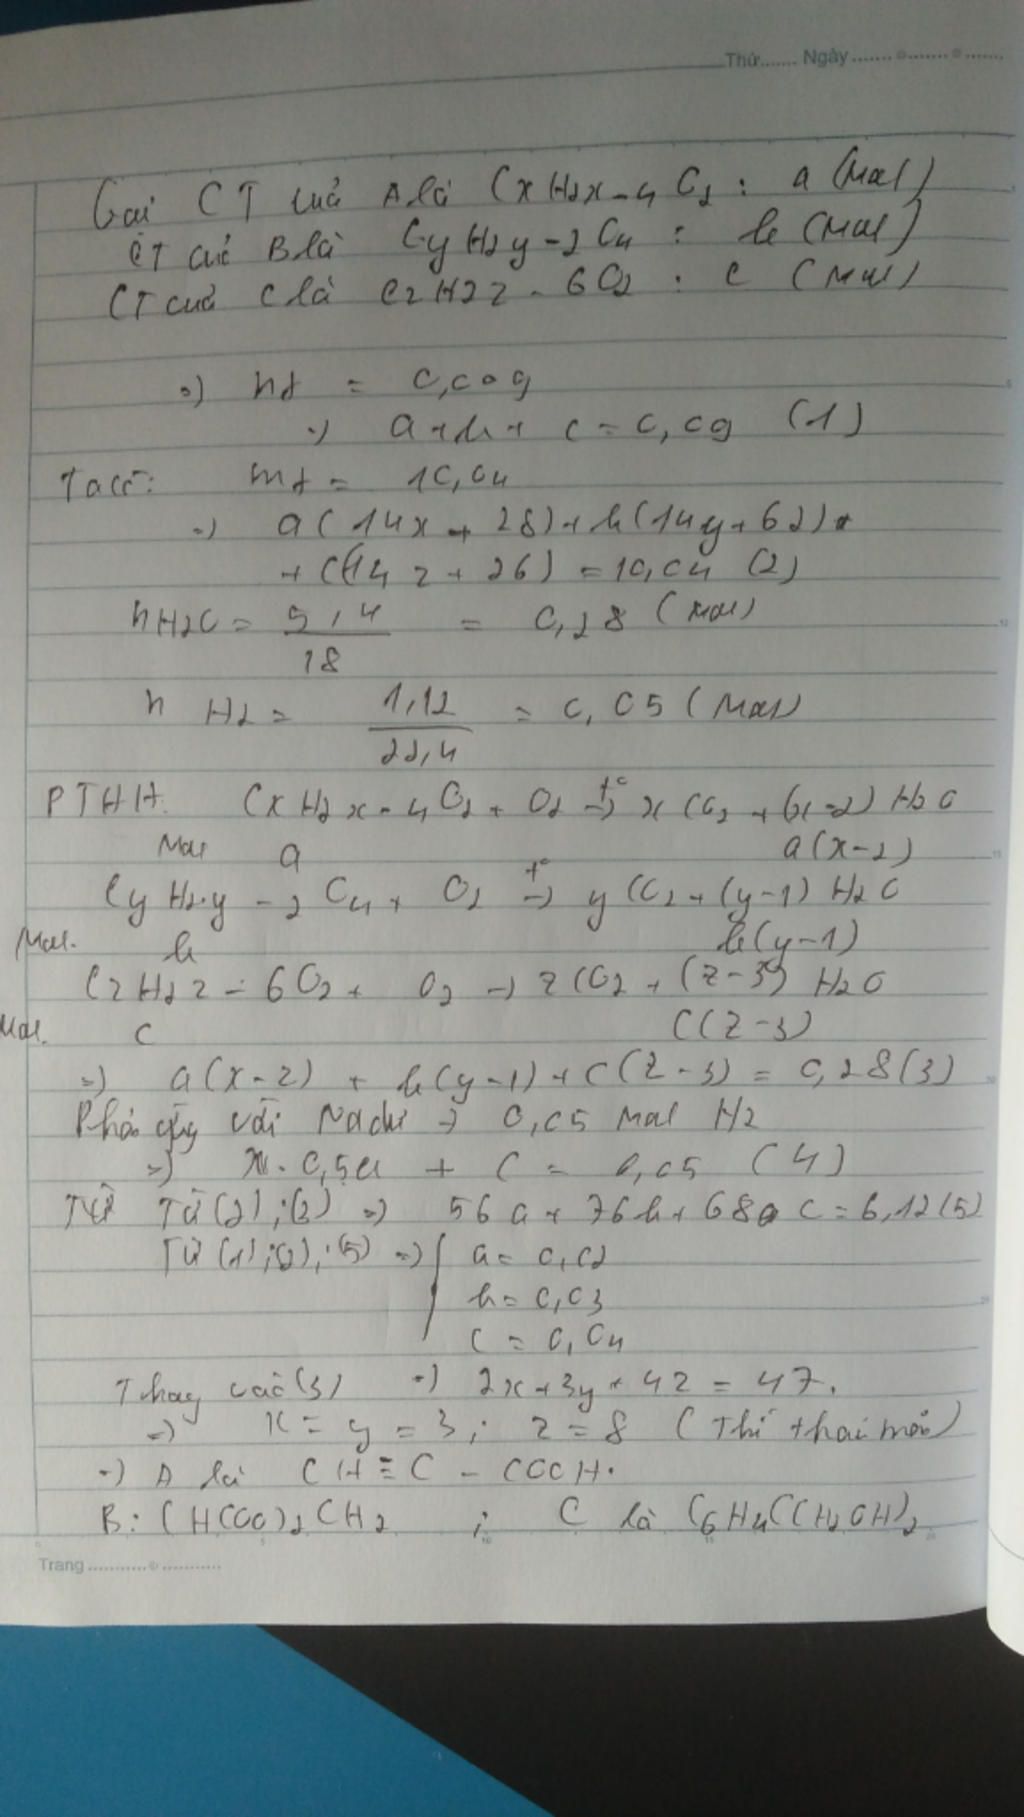 Thứ....... Ngày ....... ....... .......
Gọi CT của A là CxH2x-4O2 : a (mol)
CT của B là CyH2y-2O4 : b (mol)
CT của C là CzH2z-6O2 : c (mol)
=) nt = 0,09
=) a+b+ c = 0,09 (1)
Ta có: mt = 10,04
=) a(14x + 28)+b(14y+62)+
+ c(14z + 26) = 10,04 (2)
nH2O = 5,4/18 = 0,28 (mol)
n H2 = 1,12/22,4 = 0,05 (mol)
PTHH. CxH2x-4O2 + O2 t°→ xCO2 + (x-2) H2O
Mol a a(x-2)
CyH2y-2O4 + O2 t°→ yCO2 + (y-1) H2O
Mol. b b(y-1)
CzH2z-6O2 + O2 → zCO2 + (z-3) H2O
Mol. c c(z-3)
=) a(x-2) + b(y-1)+c(z-3) = 0,28(3)
Phản ứng với Na → 0,05 mol H2
=) 0,5a + c = 0,05 (4)
Từ (2);(3) =) 56a + 76b + 68 c = 6,12(5)
Từ (1);(2);(5) =) a = 0,02
b = 0,03
c = 0,04
Thay vào(3) =) 2x+3y+4z = 47.
=) x = y = 3; z = 8 (Thỏa mãn)
=) A là CH≡C - COOH.
B: (HCOO)2CH2 ; C là C6H4(CH2OH)2
Trang ........... ...........